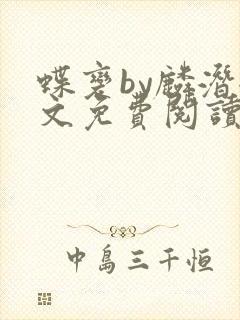 蝶褻by麟潛
文免費閱讀
中島三千恒